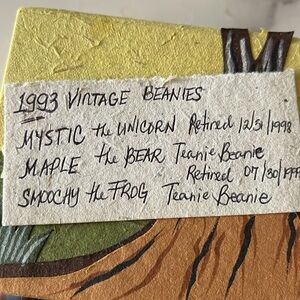 1993 VINTAGE BEANIES
MYSTIC the UNICORN Retired 12/31/1998
MAPLE the BEAR Teanie Beanie
Retired 07/30/199
SMOOCHY the FROG Teanie Beanie